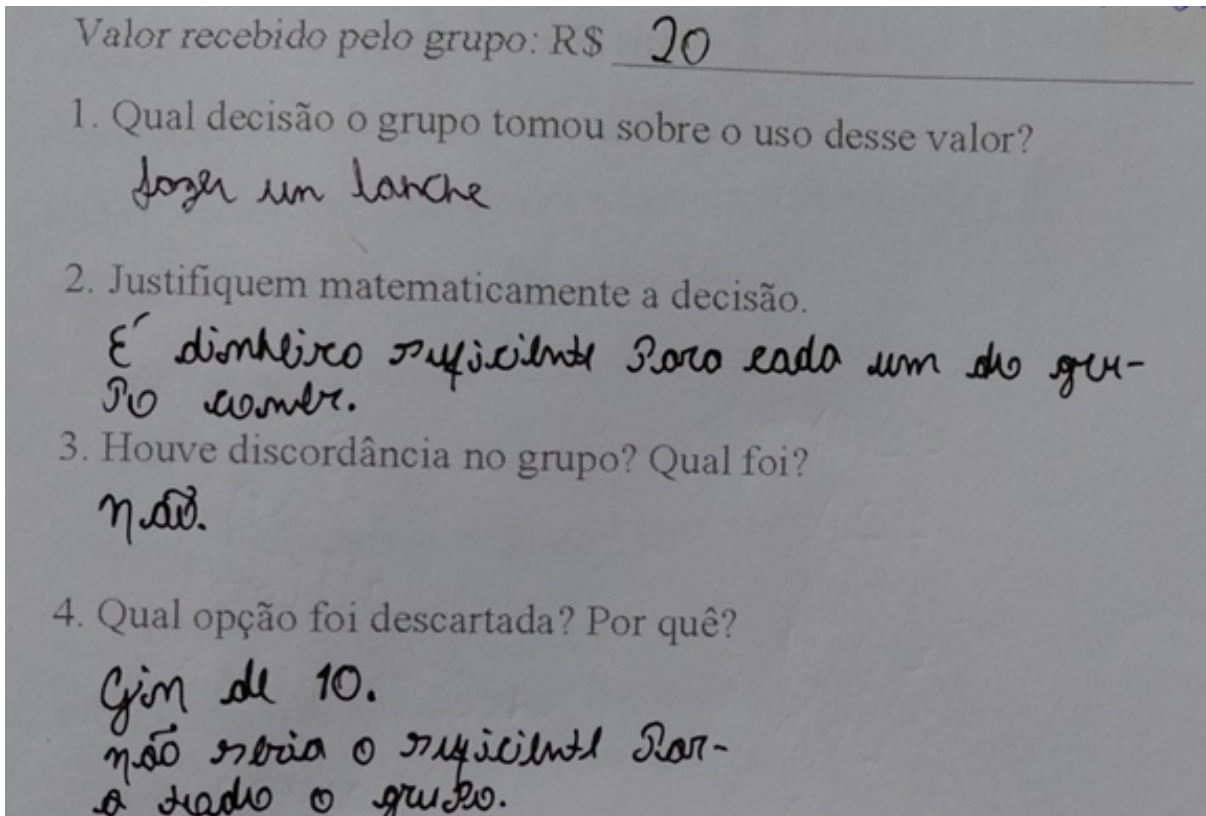 Valor recebido pelo grupo: R$ 20
1. Qual decisão o grupo tomou sobre o uso desse valor?
fazer um lanche
2. Justifiquem matematicamente a decisão.
É dinheiro suficiente Para cada um do gru-
Po comer.
3. Houve discordância no grupo? Qual foi?
não.
4. Qual opção foi descartada? Por quê?
Gin de 10.
não seria o suficiente Par-
a todo o grupo.